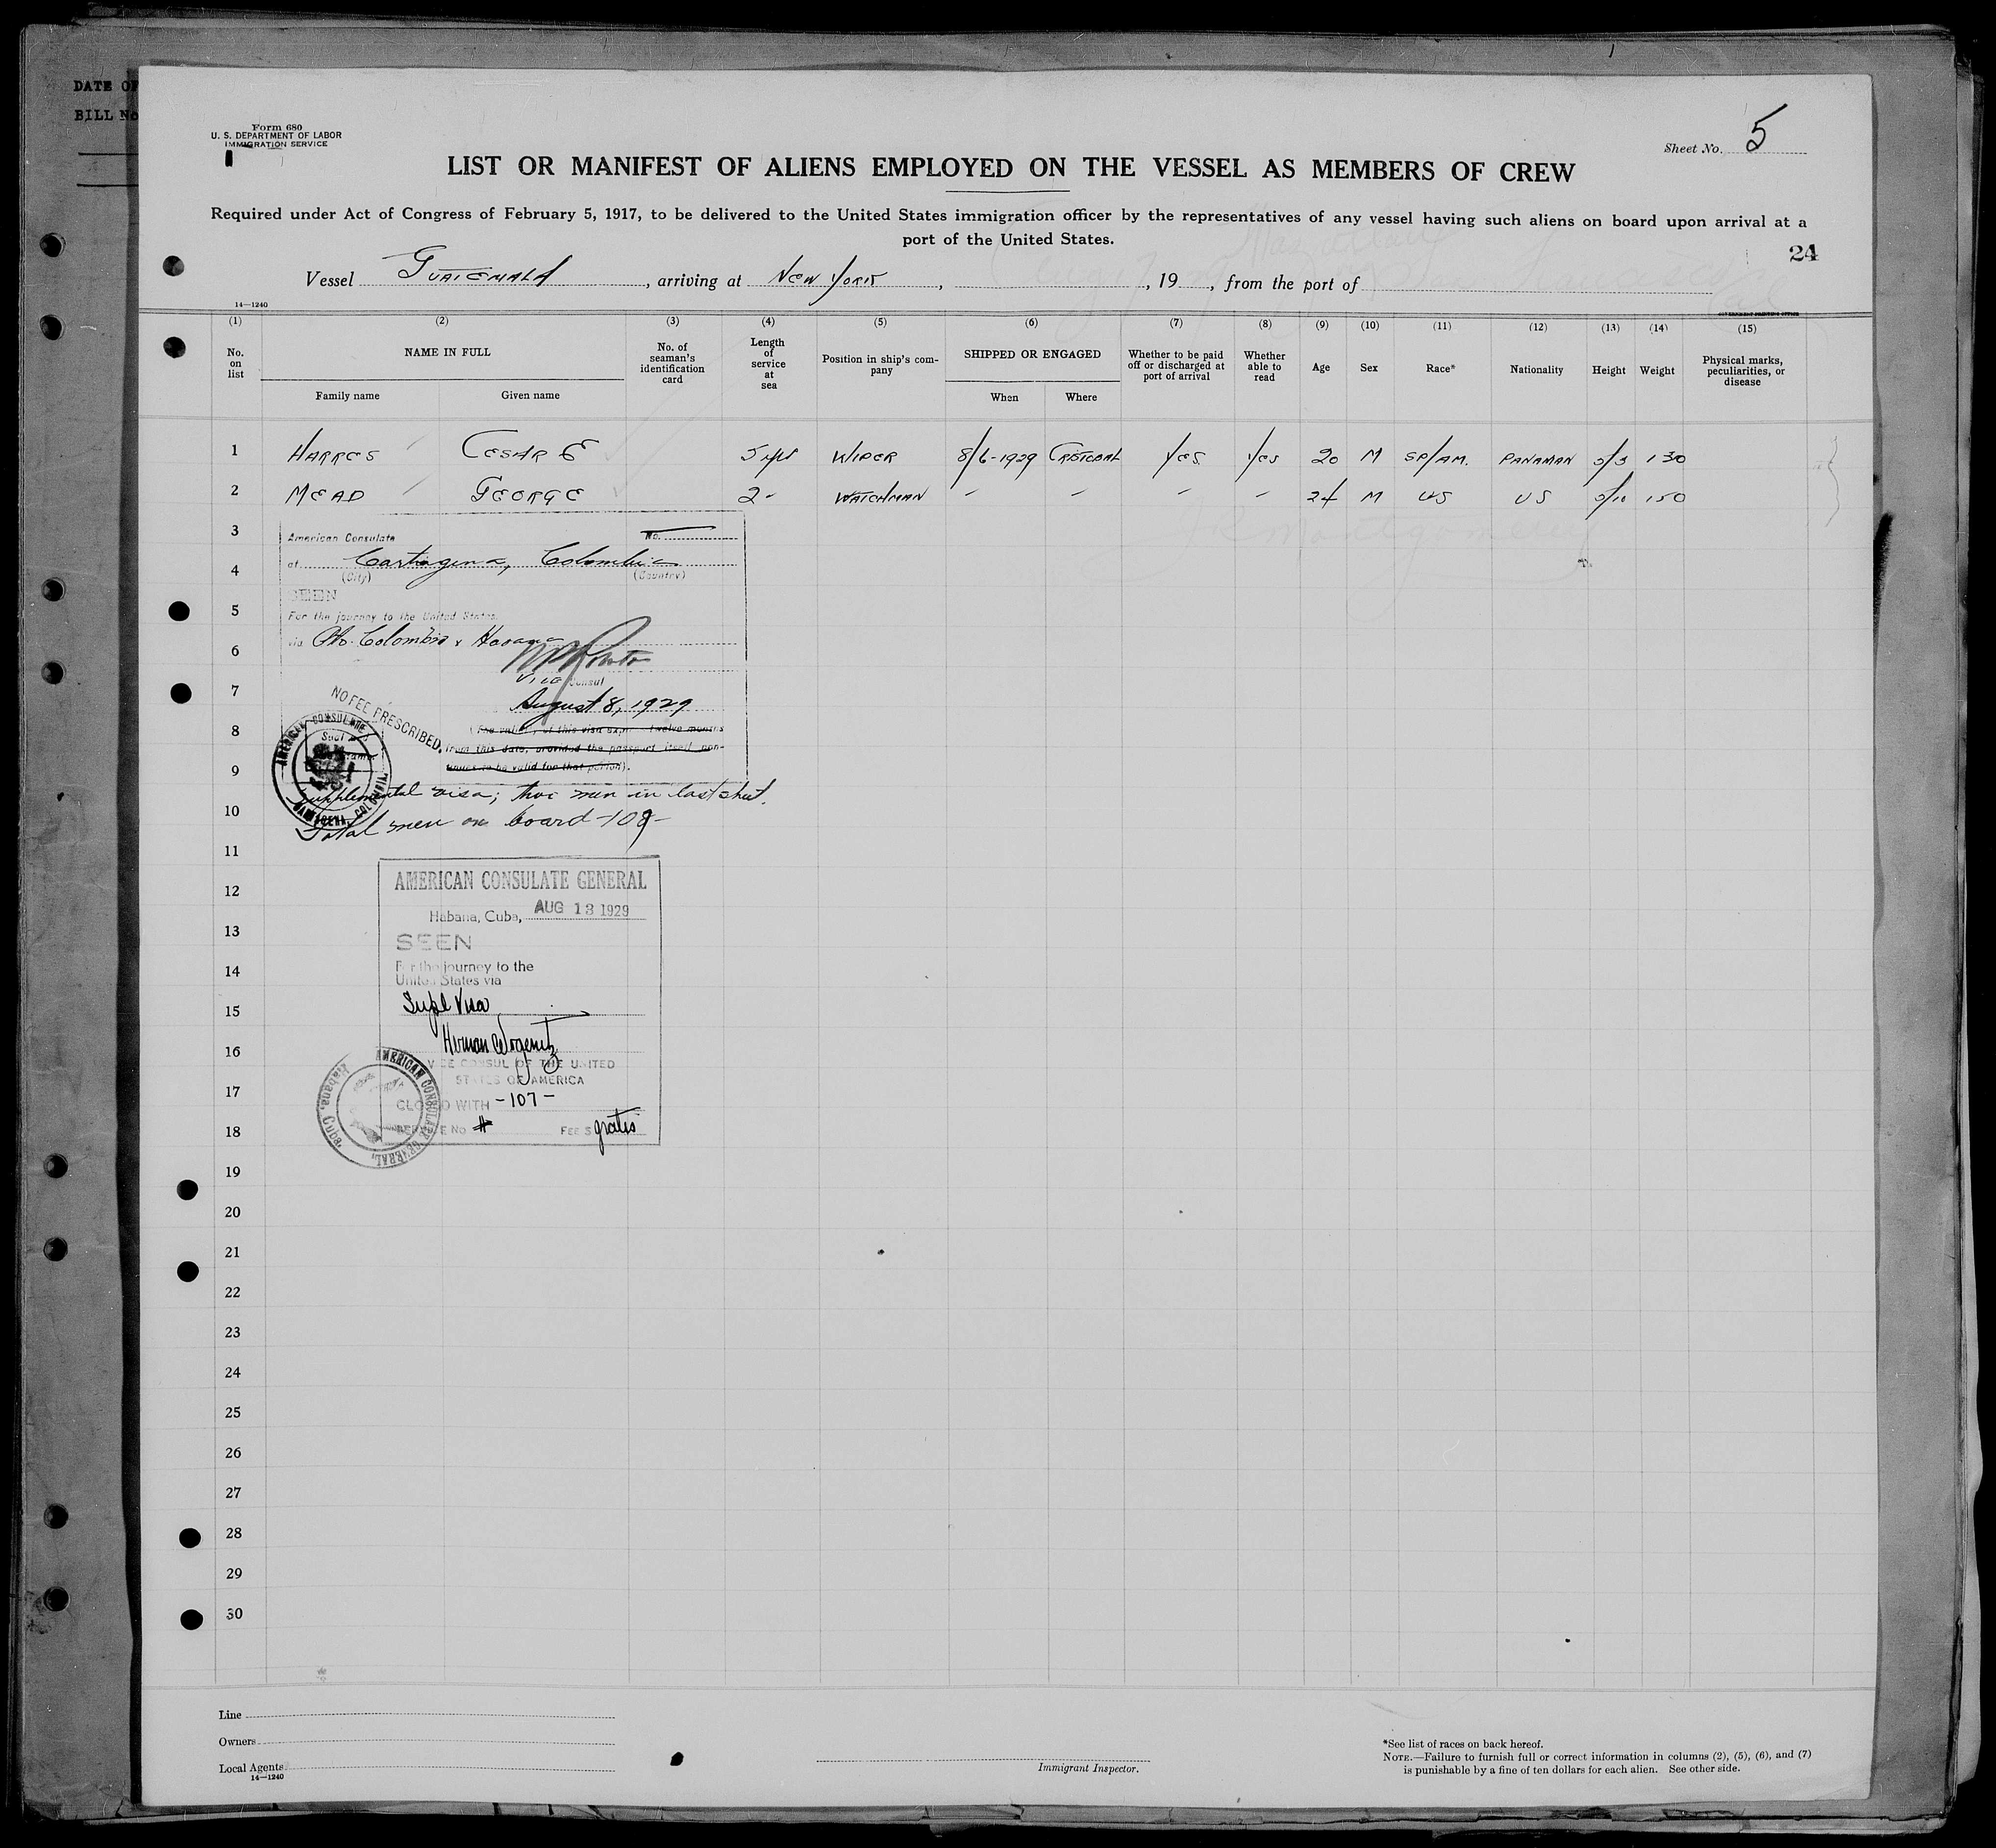 DATE OF
BILL No
Form 680
U. S. DEPARTMENT OF LABOR
IMMIGRATION SERVICE
Sheet No. 5
LIST OR MANIFEST OF ALIENS EMPLOYED ON THE VESSEL AS MEMBERS OF CREW
Required under Act of Congress of February 5, 1917, to be delivered to the United States immigration officer by the representatives of any vessel having such aliens on board upon arrival at a
port of the United States.
24
Vessel GUATEMALA, arriving at NEW YORK, , 19 , from the port of
14—1240
GOVERNMENT PRINTING OFFICE
(1) (2) (3) (4) (5) (6) (7) (8) (9) (10) (11) (12) (13) (14) (15)
No. on list
NAME IN FULL
Family name Given name
No. of seaman's identification card
Length of service at sea
Position in ship's company
SHIPPED OR ENGAGED
When Where
Whether to be paid off or discharged at port of arrival
Whether able to read
Age
Sex
Race*
Nationality
Height
Weight
Physical marks, peculiarities, or disease
1 HARRES CESAR E 5 yrs WIPER 8/6-1929 CRISTOBAL YES YES 20 M SP/AM. PANAMAN 5/3 130
2 MEAD GEORGE 2 - WATCHMAN - - - - 24 M US US 5/10 150
3
4
5
6
7
8
9
10
11
12
13
14
15
16
17
18
19
20
21
22
23
24
25
26
27
28
29
30
American Consulate No.
at Cartagena, Colombia
(City) (Country)
SEEN
For the journey to the United States.
via Pto. Colombia & Havana
Vice Consul
August 8, 1929
NO FEE PRESCRIBED.
(The validity of this visa expires twelve months
from this date, provided the passport itself con-
tinues to be valid for that period).
AMERICAN CONSULATE
CARTAGENA, COLOMBIA
Supplemental visa; two men in last sheet.
Total men on board -108-
AMERICAN CONSULATE GENERAL
Habana, Cuba, AUG 13 1929
SEEN
For the journey to the
United States via
Supl Visa
VICE CONSUL OF THE UNITED
STATES OF AMERICA
CLOSED WITH -107-
SERVICE No # FEE $ gratis
AMERICAN CONSULATE GENERAL,
Habana, Cuba.
Line
Owners
Local Agents
14—1240
Immigrant Inspector.
*See list of races on back hereof.
NOTE.—Failure to furnish full or correct information in columns (2), (5), (6), and (7)
is punishable by a fine of ten dollars for each alien. See other side.